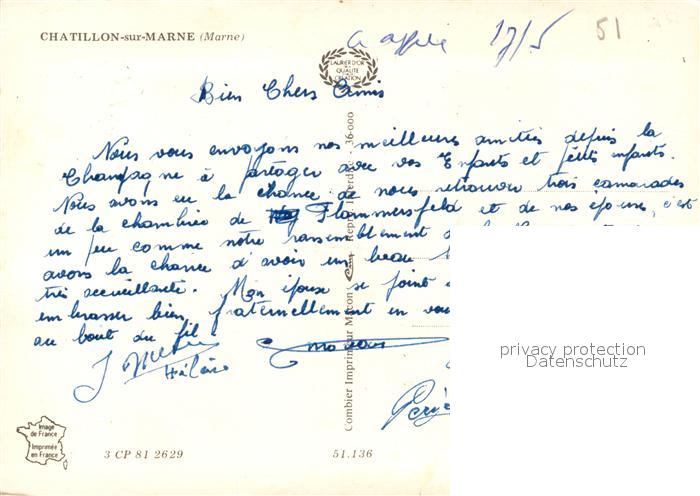 CHATILLON-sur-MARNE (Marne)
a appelé 17/5 51
LAURIER D'OR
QUALITE
CREATION
Bien Chers Amis
Nous vous envoyons nos meilleures amitiés depuis la
Champagne à partager avec vos Enfants et petits enfants.
Nous avons eu la chance de nous retrouver trois camarades
de la chambrée de Flammersfeld et de nos épouses, c'est
un peu comme notre rassemblement
avons la chance d'avoir un beau
très accueillante. Mon épouse se joint
embrasser bien fraternellement en
au bout du fil
Hélène
36-000
Combier Imprimeur Macon
privacy protection
Datenschutz
Image
de France
Imprimée
en France
3 CP 81 2629
51.136